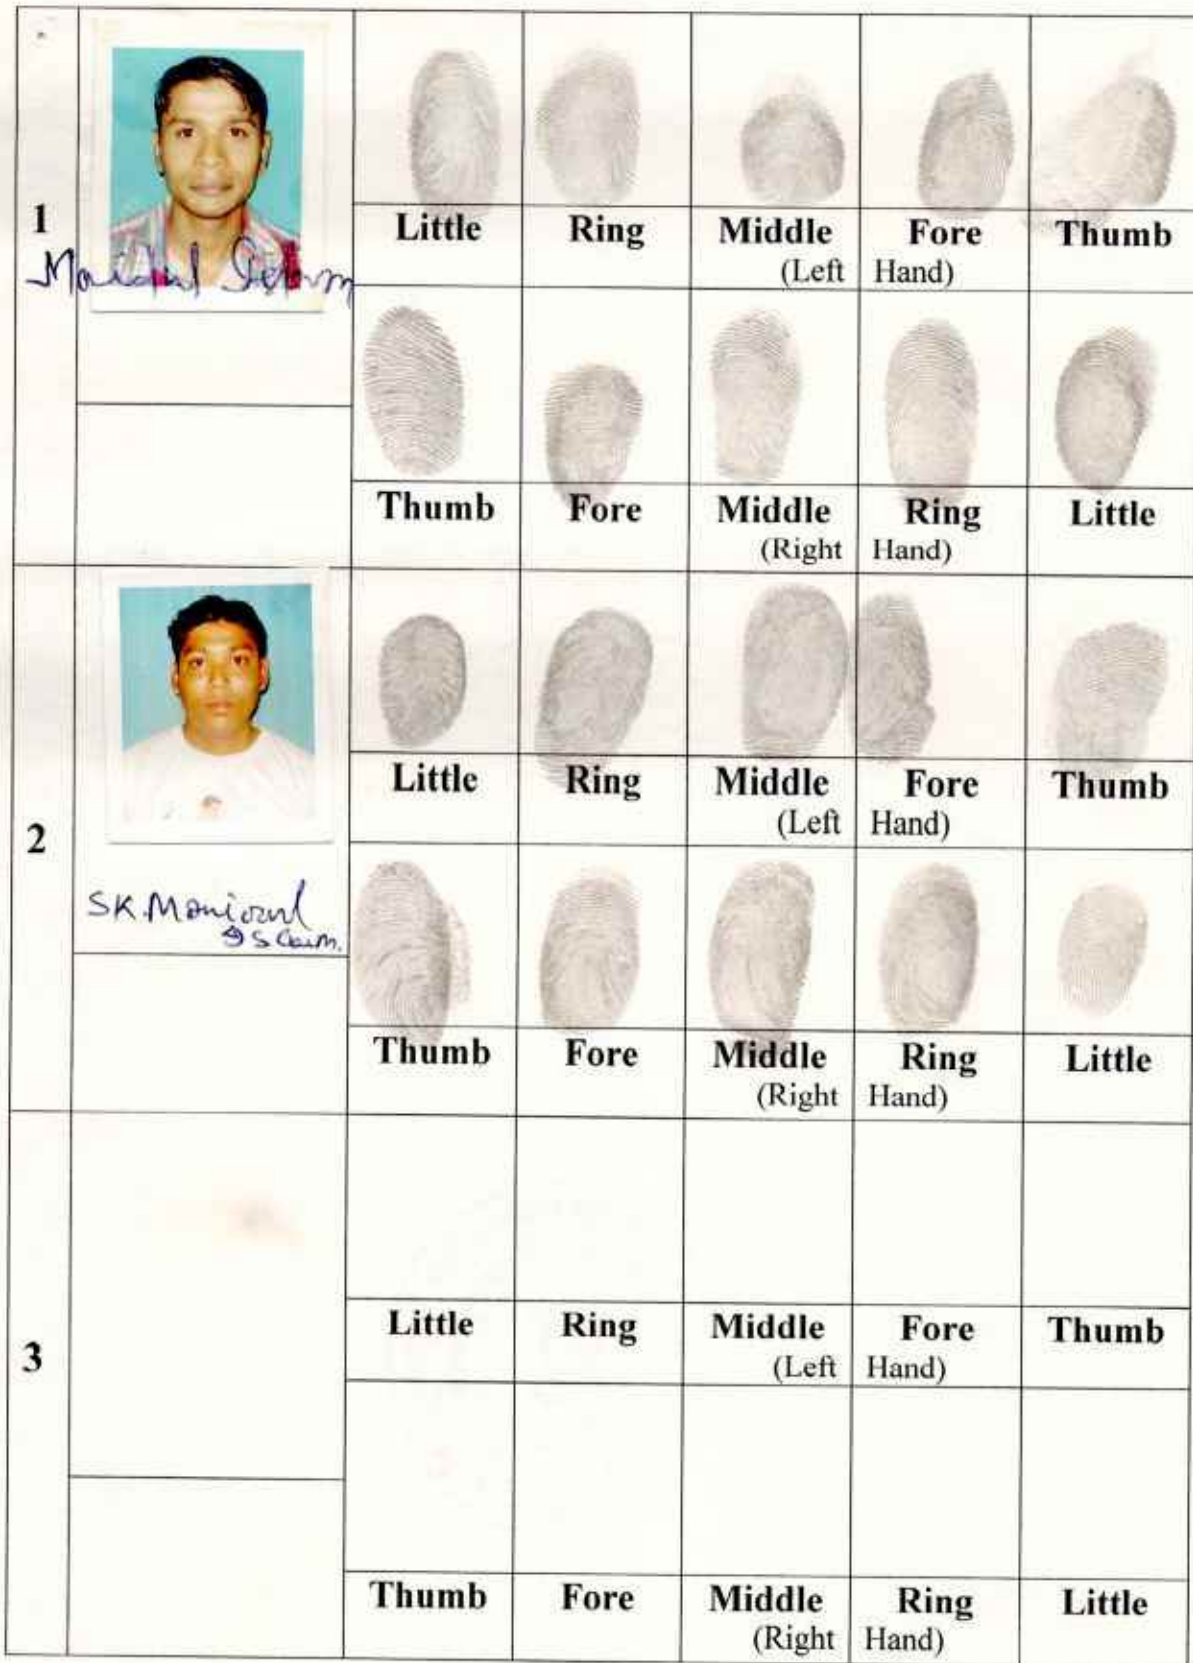 1
Little Ring Middle Fore Thumb
(Left Hand)
Thumb Fore Middle Ring Little
(Right Hand)
2
SK. Monirul
Little Ring Middle Fore Thumb
(Left Hand)
Thumb Fore Middle Ring Little
(Right Hand)
3
Little Ring Middle Fore Thumb
(Left Hand)
Thumb Fore Middle Ring Little
(Right Hand)